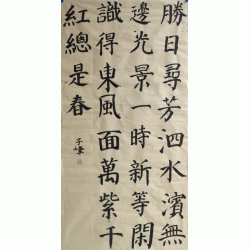 勝日尋芳泗水濱無
邊光景一時新等閑
識得東風面萬紫千
紅總是春
子峰